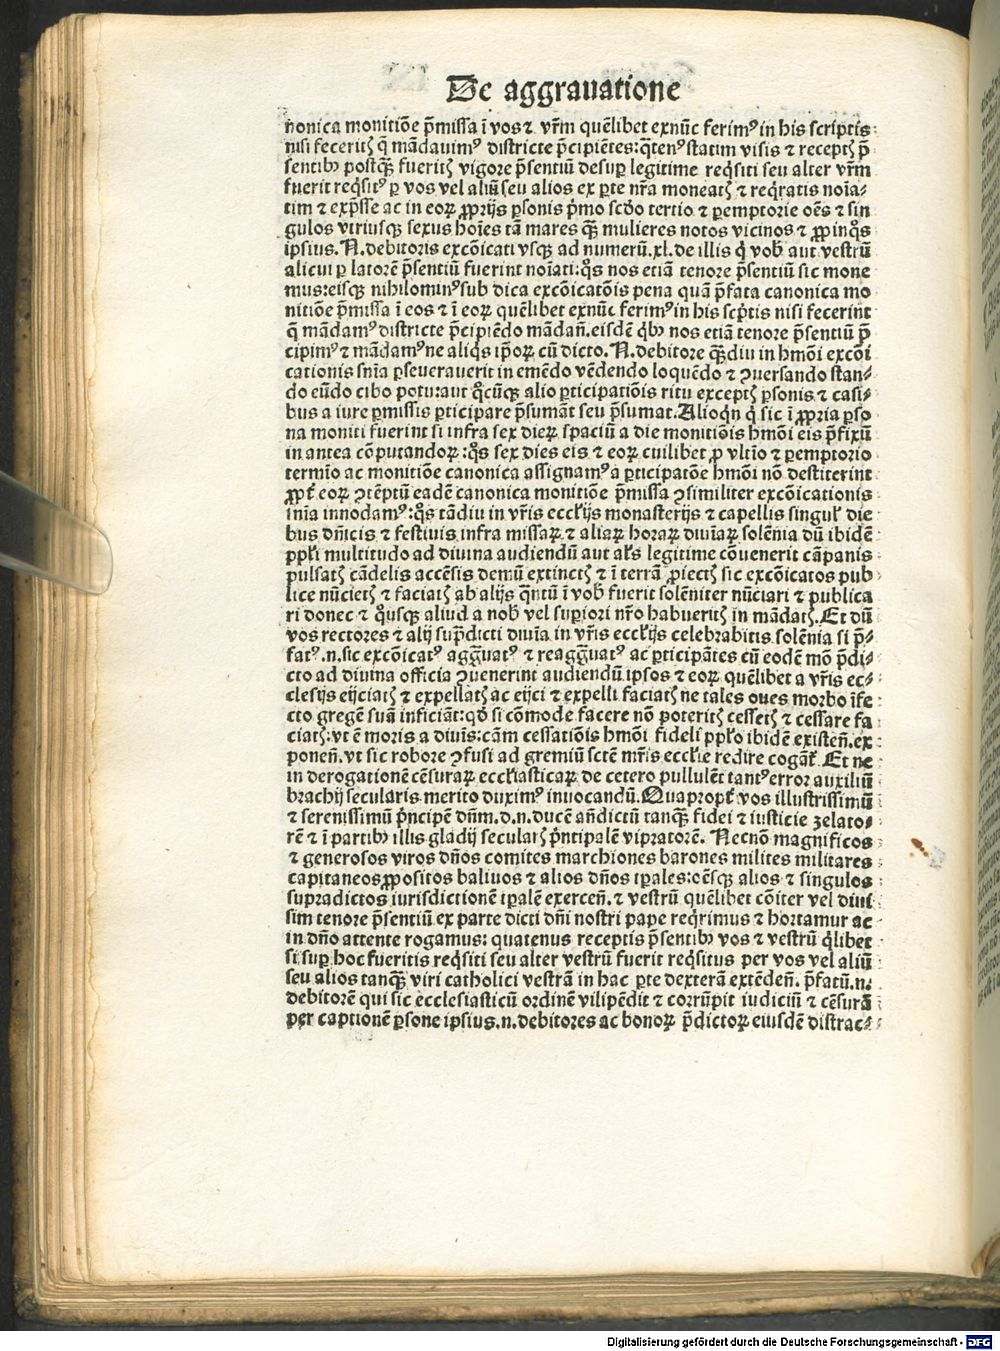 De aggrauatione
nonica monitiōe p̄missa ī vos ⁊ vr̄m quēlibet exnūc ferimꝰ in his scriptis
nisi feceritꝭ q̄ mādauimꝰ districte p̄cipiētes: q̄tenꝰ statim visis ⁊ receptꝭ p̄
sentibꝰ postqꝫ̄ fueritꝭ vigore p̄sentiū desuꝑ legitime reqͥsiti seu alter vr̄m
fuerit reqͥsitꝰ ꝑ vos vel aliū seu alios ex ꝑte nr̄a moneatꝭ ⁊ reqͥratis noīa⸗
tim ⁊ exp̄sse ac in eoꝝ ꝓprijs ꝑsonis pͥmo scd̄o tertio ⁊ ꝑemptorie oēs ⁊ sin
gulos vtriusqꝫ sexus hoīes tā mares qꝫ̄ mulieres notos vicinos ⁊ ꝓpinqͦs
ipsius. N. debitoris excōicati vsqꝫ ad numerū. xl. de illis qͥ vob̄ aut vestrū
alicui ꝑ latorē p̄sentiū fuerint noīati: qͦs nos etiā tenore p̄sentiū sic mone
mus: eisqꝫ nihilominꝰ sub dicta excōicatōis pena quā p̄fata canonica mo
nitiōe p̄missa ī eos ⁊ ī eoꝝ quēlibet exnūc ferimꝰ in his scp̄tis nisi fecerint
q̄ mādamꝰ districte p̄cipiēdo mādan̄. eisdē qͥbꝰ nos etiā tenore p̄sentiū p̄
cipimꝰ ⁊ mādamꝰ ne aliqͥs ip̄oꝝ cū dicto. N. debitore qꝫ̄diu in hmōi excōi
cationis sn̄ia ꝑseuerauerit in emēdo vēdendo loquēdo ⁊ ꝯuersando stan⸗
do eūdo cibo potu: aut qͦcūqꝫ alio ꝑticipatiōis ritu exceptꝭ ꝑsonis ⁊ casi⸗
bus a iure ꝑmissis ꝑticipare p̄sumāt seu p̄sumat. Alioqn̄ qͥ sic ī ꝓpria ꝑso
na moniti fuerint si infra sex dieꝝ spaciū a die monitiōis hmōi eis p̄fixū
in antea cōputandoꝝ: qͦs sex dies eis ⁊ eoꝝ cuilibet ꝓ vltīo ⁊ ꝑemptorio
termīo ac monitiōe canonica assignamꝰ a ꝑticipatōe hmōi nō destiterint
ꝓpt̄ eoꝝ ꝯtēptū eadē canonica monitiōe p̄missa ꝯsimiliter excōicationis
sn̄ia innodamꝰ: qͦs tādiu in vr̄is eccl̄ijs monasterijs ⁊ capellis singul̄ die
bus dn̄icis ⁊ festiuis infra missaꝝ ⁊ aliaꝝ horaꝝ diuīaꝝ solēnia dū ibidē
pp̄l̄i multitudo ad diuina audiendū aut al̄s legitime cōuenerit cāpanis
pulsatꝭ cādelis accēsis demū extinctꝭ ⁊ ī terrā ꝓiectꝭ sic excōicatos pub
lice nūcietꝭ ⁊ faciatꝭ ab alijs qͣntū ī vob̄ fuerit solēniter nūciari ⁊ publica
ri donec ⁊ qͦusqꝫ aliud a nob̄ vel suꝑiori nr̄o habueritꝭ in mādatꝭ. Et dū
vos rectores ⁊ alij sup̄dicti diuīa in vr̄is eccl̄ijs celebrabitis solēnia si p̄⸗
fatꝰ. n. sic excōicatꝰ aggͣuatꝰ ⁊ reaggͣuatꝰ ac ꝑticipātes cū eodē mō p̄di⸗
cto ad diuina officia ꝯuenerint audiendū ipsos ⁊ eoꝝ quēlibet a vr̄is ec⸗
clesijs eijciatꝭ ⁊ expellatꝭ ac eijci ⁊ expelli faciatꝭ ne tales oues morbo īfe
cto gregē suā inficiāt: qd̄ si cōmode facere nō poteritꝭ cessetꝭ ⁊ cessare fa
ciatꝭ: vt ē moris a diuīs: cām cessatiōis hmōi fideli pp̄l̄o ibidē existen̄. ex
ponen̄. vt sic robore ꝯfusi ad gremiū sctē mr̄is eccl̄ie redire cogāt̄. Et ne
in derogationē cēsuraꝝ eccl̄iasticaꝝ de cetero pullulēt tantꝰ error auxiliū
brachij secularis merito duximꝰ inuocandū. Quapropt̄ vos illustrissimū
⁊ serenissimū pͥncipē dn̄m. d. n. ducē an̄dictū tanqꝫ̄ fidei ⁊ iusticie zelato⸗
rē ⁊ ī partibꝰ illis gladij secularꝭ pͥntipalē vipratorē. Necnō magnificos
⁊ generosos viros dn̄os comites marchiones barones milites militares
capitaneos ꝓpositos baliuos ⁊ alios dn̄os ipales: cēsqꝫ alios ⁊ singulos
supradictos iurisdictionē ipalē exercen̄. ⁊ vestrū quēlibet cōiter vel diui
sim tenore p̄sentiū ex parte dicti dn̄i nostri pape reqͥrimus ⁊ hortamur ac
in dn̄o attente rogamus: quatenus receptis p̄sentibꝰ vos ⁊ vestrū qͥlibet
si suꝑ hoc fueritis reqͥsiti seu alter vestrū fuerit reqͥsitus per vos vel aliū
seu alios tanqꝫ̄ viri catholici vestrā in hac ꝑte dexterā extēden̄. p̄fatū. n.
debitorē qui sic ecclesiasticū ordinē vilipēdit ⁊ corrūpit iudiciū ⁊ cēsurā
per captionē ꝑsone ipsius. n. debitores ac bonoꝝ p̄dictoꝝ eiusdē distrac⸗
Digitalisierung gefördert durch die Deutsche Forschungsgemeinschaft - DFG